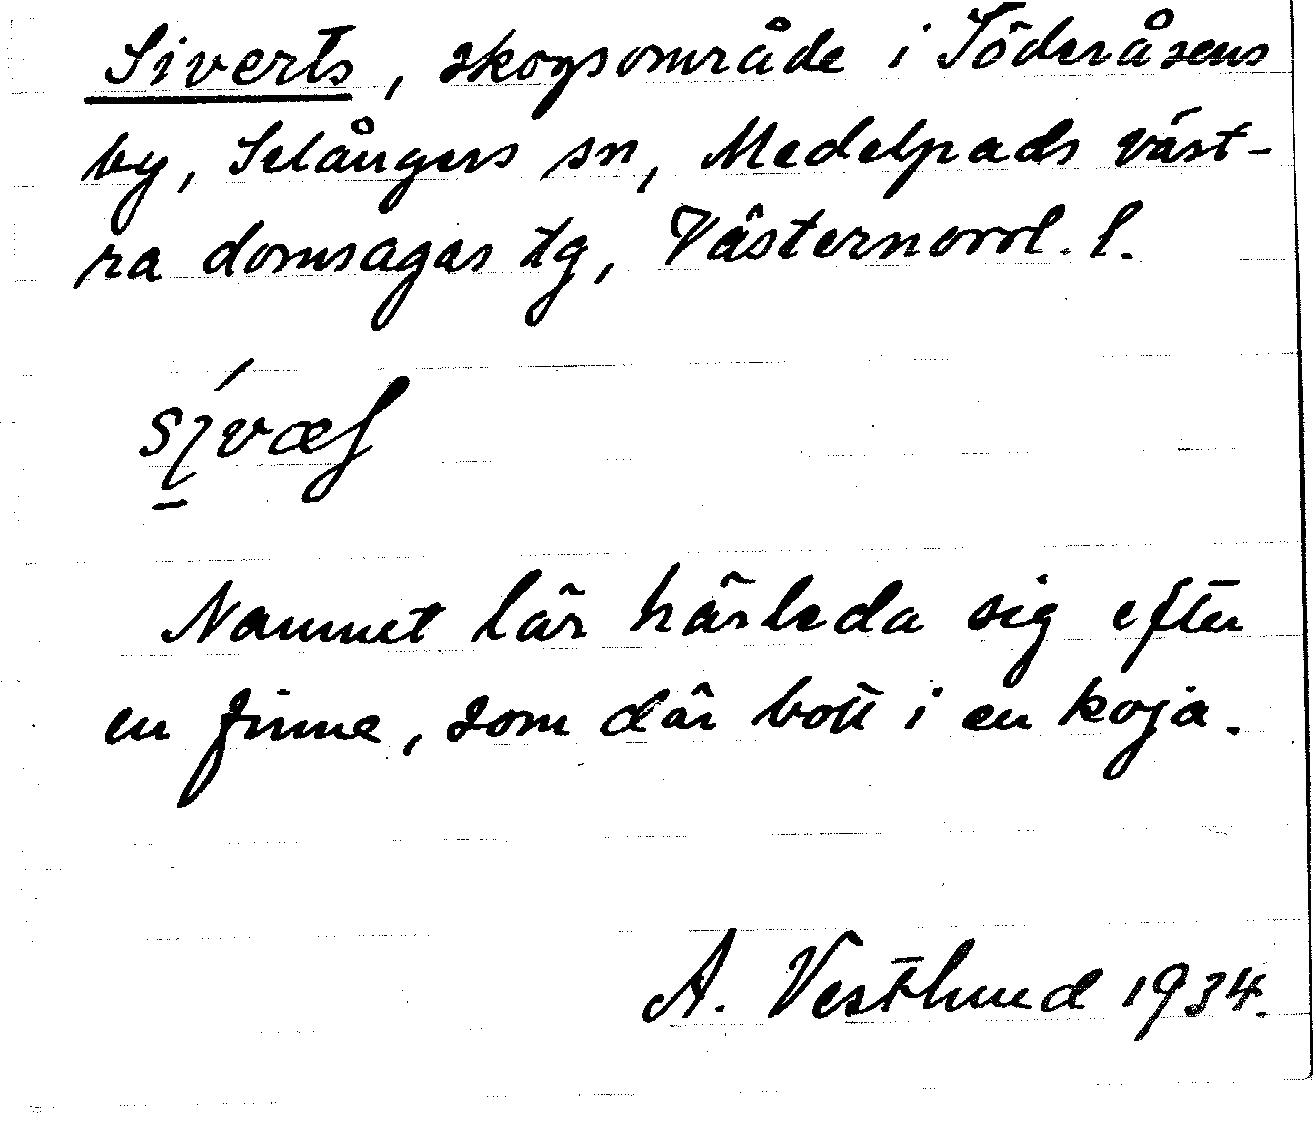 Siverts, skogsområde i Söderåsens
by, Selångers sn, Medelpads väst-
ra domsagas tg, Västernorrl. l.
sívæʃ
Namnet lär härleda sig efter
en finne, som där bott i en koja.
A. Vestlund 1934.